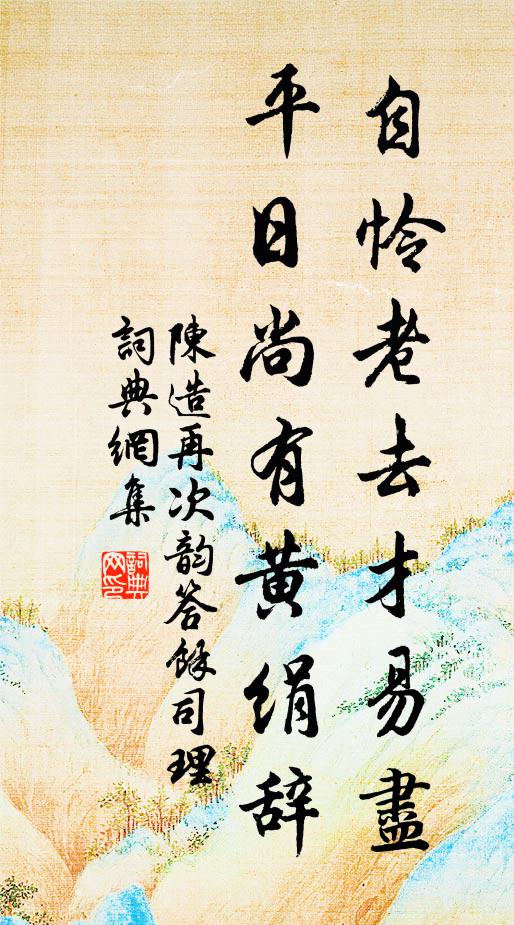 自怜老去才易盡
平日尚有黄绢辞
陳造再次韵答餘司理
詞典網集
詞典网印